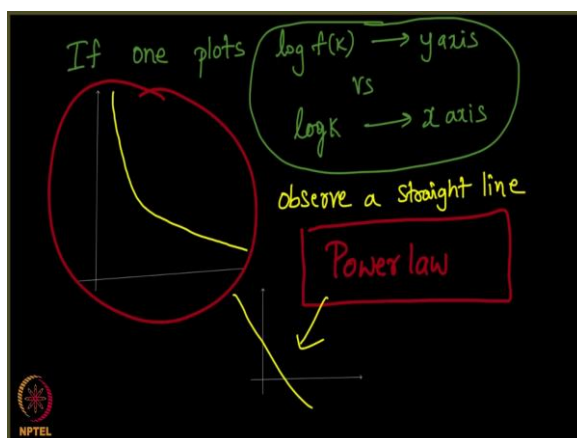 If one plots log f(k) → y axis
vs
log k → x axis
observe a straight line
Power law
NPTEL